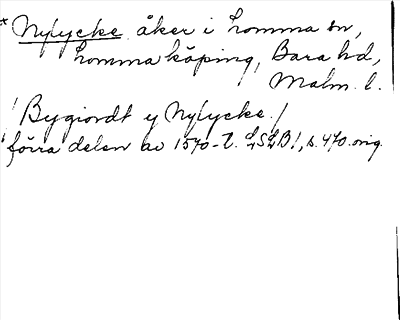 *Nylycke åker i Lomma sn,
Lomma köping, Bara hd,
Malm. l.
/Bygiordt y Nylycke./
förra delen av 1570-t. LSLB!, s. 470. orig.